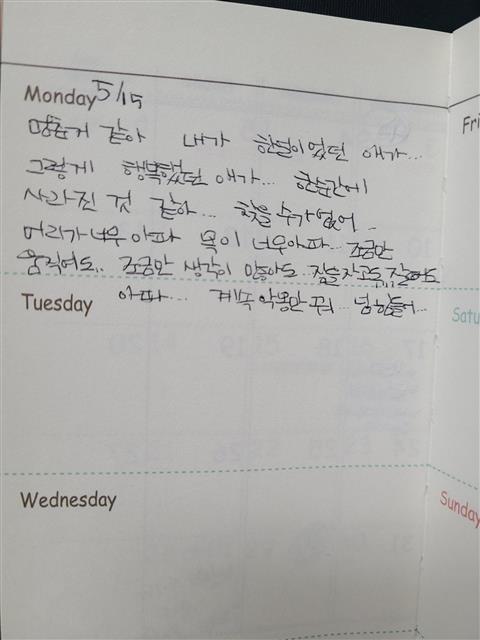 Monday 5/15
멈춘거 같아 내가 한없이 웃던 애가...
그렇게 행복했던 애가... 한순간에
사라진 것 같아... 찾을 수가 없어..
머리가 너무 아파 목이 너무 아파... 조금만
움직여도.. 조금만 생각이 많아도.. 잠을 자고도..
Tuesday 아파... 계속 악몽만 꿔... 넘 힘들어...
Wednesday
Fri
Satu
Sunday